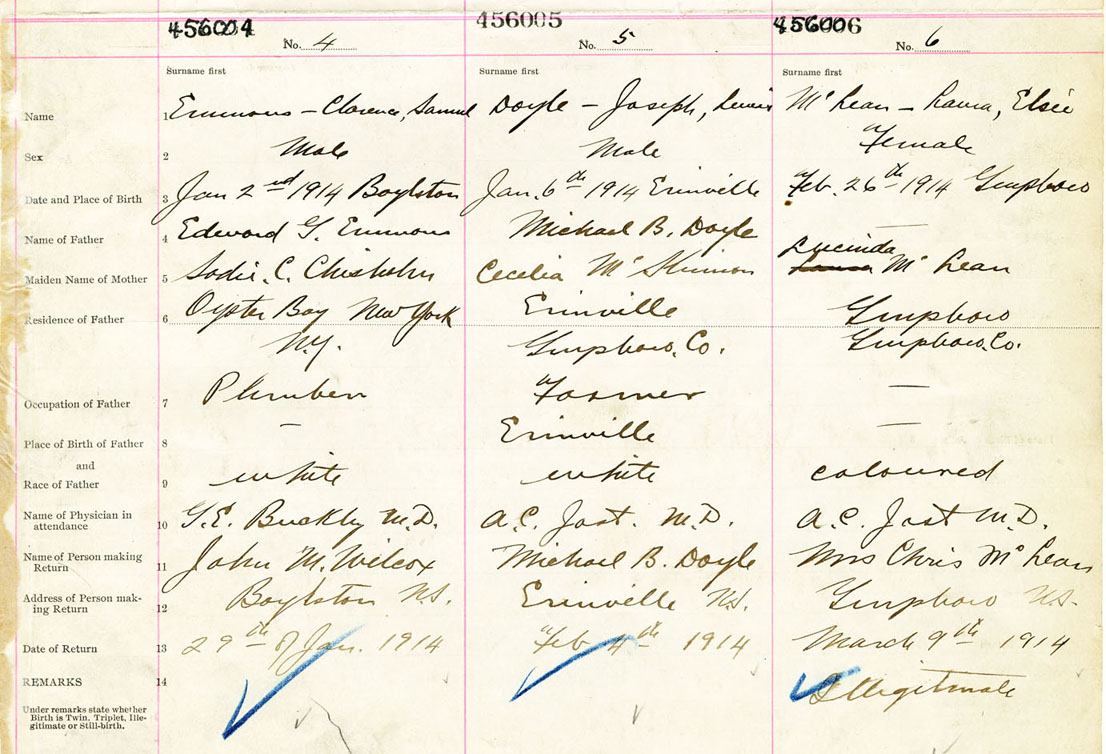 456004 456005 456006
No. 4 No. 5 No. 6
Surname first Surname first Surname first
Name 1 Emmons - Clarence, Samuel Doyle - Joseph, Lewis McLean - Laura, Elsie
Sex 2 Male Male Female
Date and Place of Birth 3 Jan 2nd 1914 Boylston Jan. 6th 1914 Erinville Feb. 26th 1914 Guysboro
Name of Father 4 Edward G. Emmons Michael B. Doyle —
Lucinda
Maiden Name of Mother 5 Sadie. C. Chisholm Cecelia McKinnon Laura McLean
Residence of Father 6 Oyster Bay New York Erinville Guysboro
N.Y. Guysboro, Co. Guysboro, Co.
Occupation of Father 7 Plumber Farmer —
Place of Birth of Father 8 — Erinville —
and
Race of Father 9 white white coloured
Name of Physician in
attendance 10 G.E. Buckley M.D. A.C. Jost. M.D. A.C. Jost M.D.
Name of Person making
Return 11 John M. Wilcox Michael B. Doyle Mrs Chris McLean
Address of Person mak-
ing Return 12 Boylston N.S. Erinville N.S. Guysboro N.S.
Date of Return 13 29th of Jan. 1914 Feb 4th 1914 March 9th 1914
REMARKS 14 Illegitimate
Under remarks state whether
Birth is Twin, Triplet, Ille-
gitimate or Still-birth.